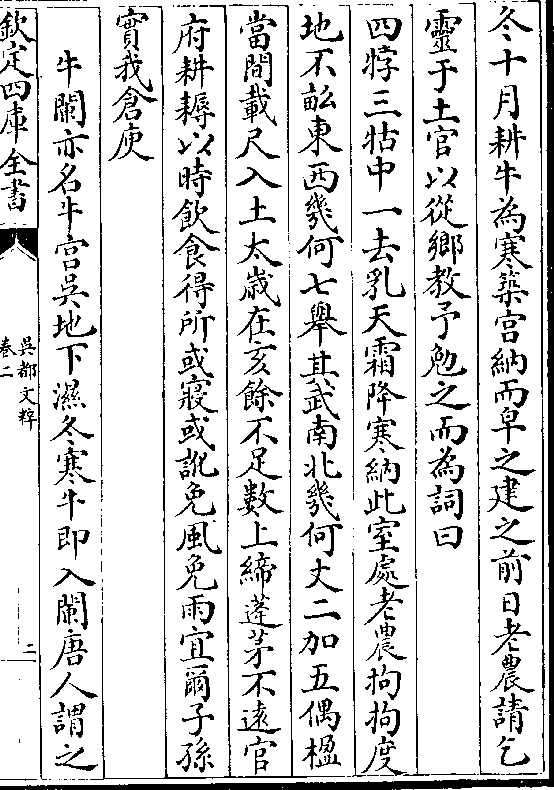 冬十月耕牛為寒築宮納而皁之建之前日老農請乞
靈于土官以從鄉教予勉之而為詞曰
四牸三牯中一去乳天霜降寒納此室處老農拘拘度
地不畝東西幾何七舉其武南北幾何丈二加五偶楹
當間載尺入土太歲在亥餘不足數上締蓬茅不遠官
府耕耨以時飲食得所或寢或訛免風免雨宜爾子孫
實我倉庾
牛闌亦名牛宮吳地下濕冬寒牛即入闌唐人謂之
欽定四庫全書
吳都文粹
卷二
二